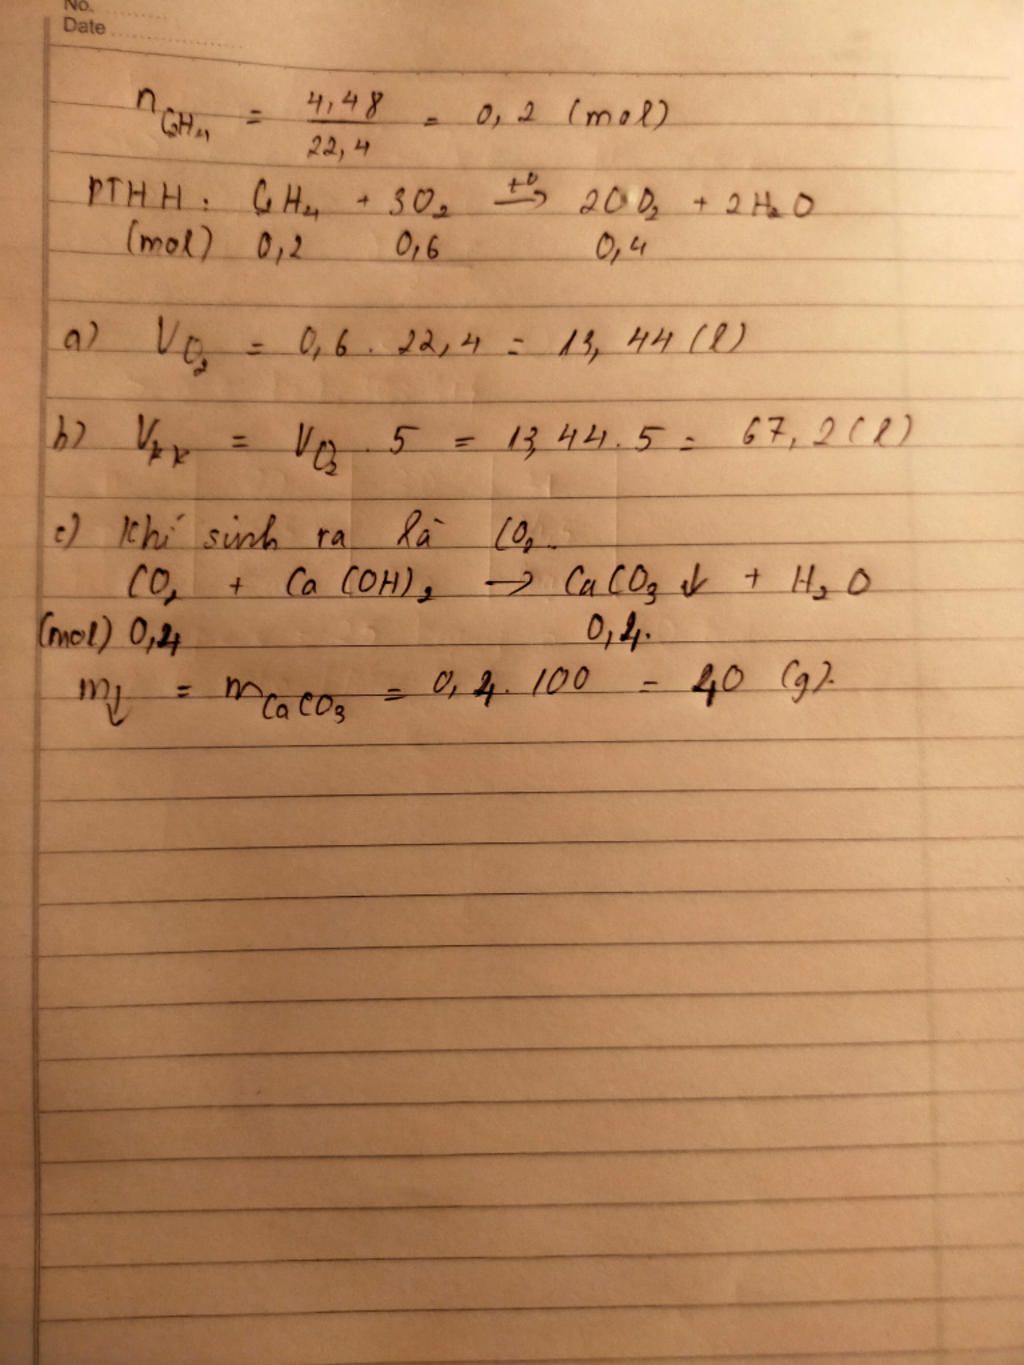 No.
Date
n C2H4 = 4,48 / 22,4 = 0,2 (mol)
PTHH: C2H4 + 3O2 t0→ 2CO2 + 2H2O
(mol) 0,2 0,6 0,4
a) VO2 = 0,6 . 22,4 = 13,44 (l)
b) Vkk = VO2 . 5 = 13,44 . 5 = 67,2 (l)
c) Khí sinh ra là CO2.
CO2 + Ca(OH)2 → CaCO3 ↓ + H2O
(mol) 0,4 0,4.
m↓ = mCaCO3 = 0,4 . 100 = 40 (g).